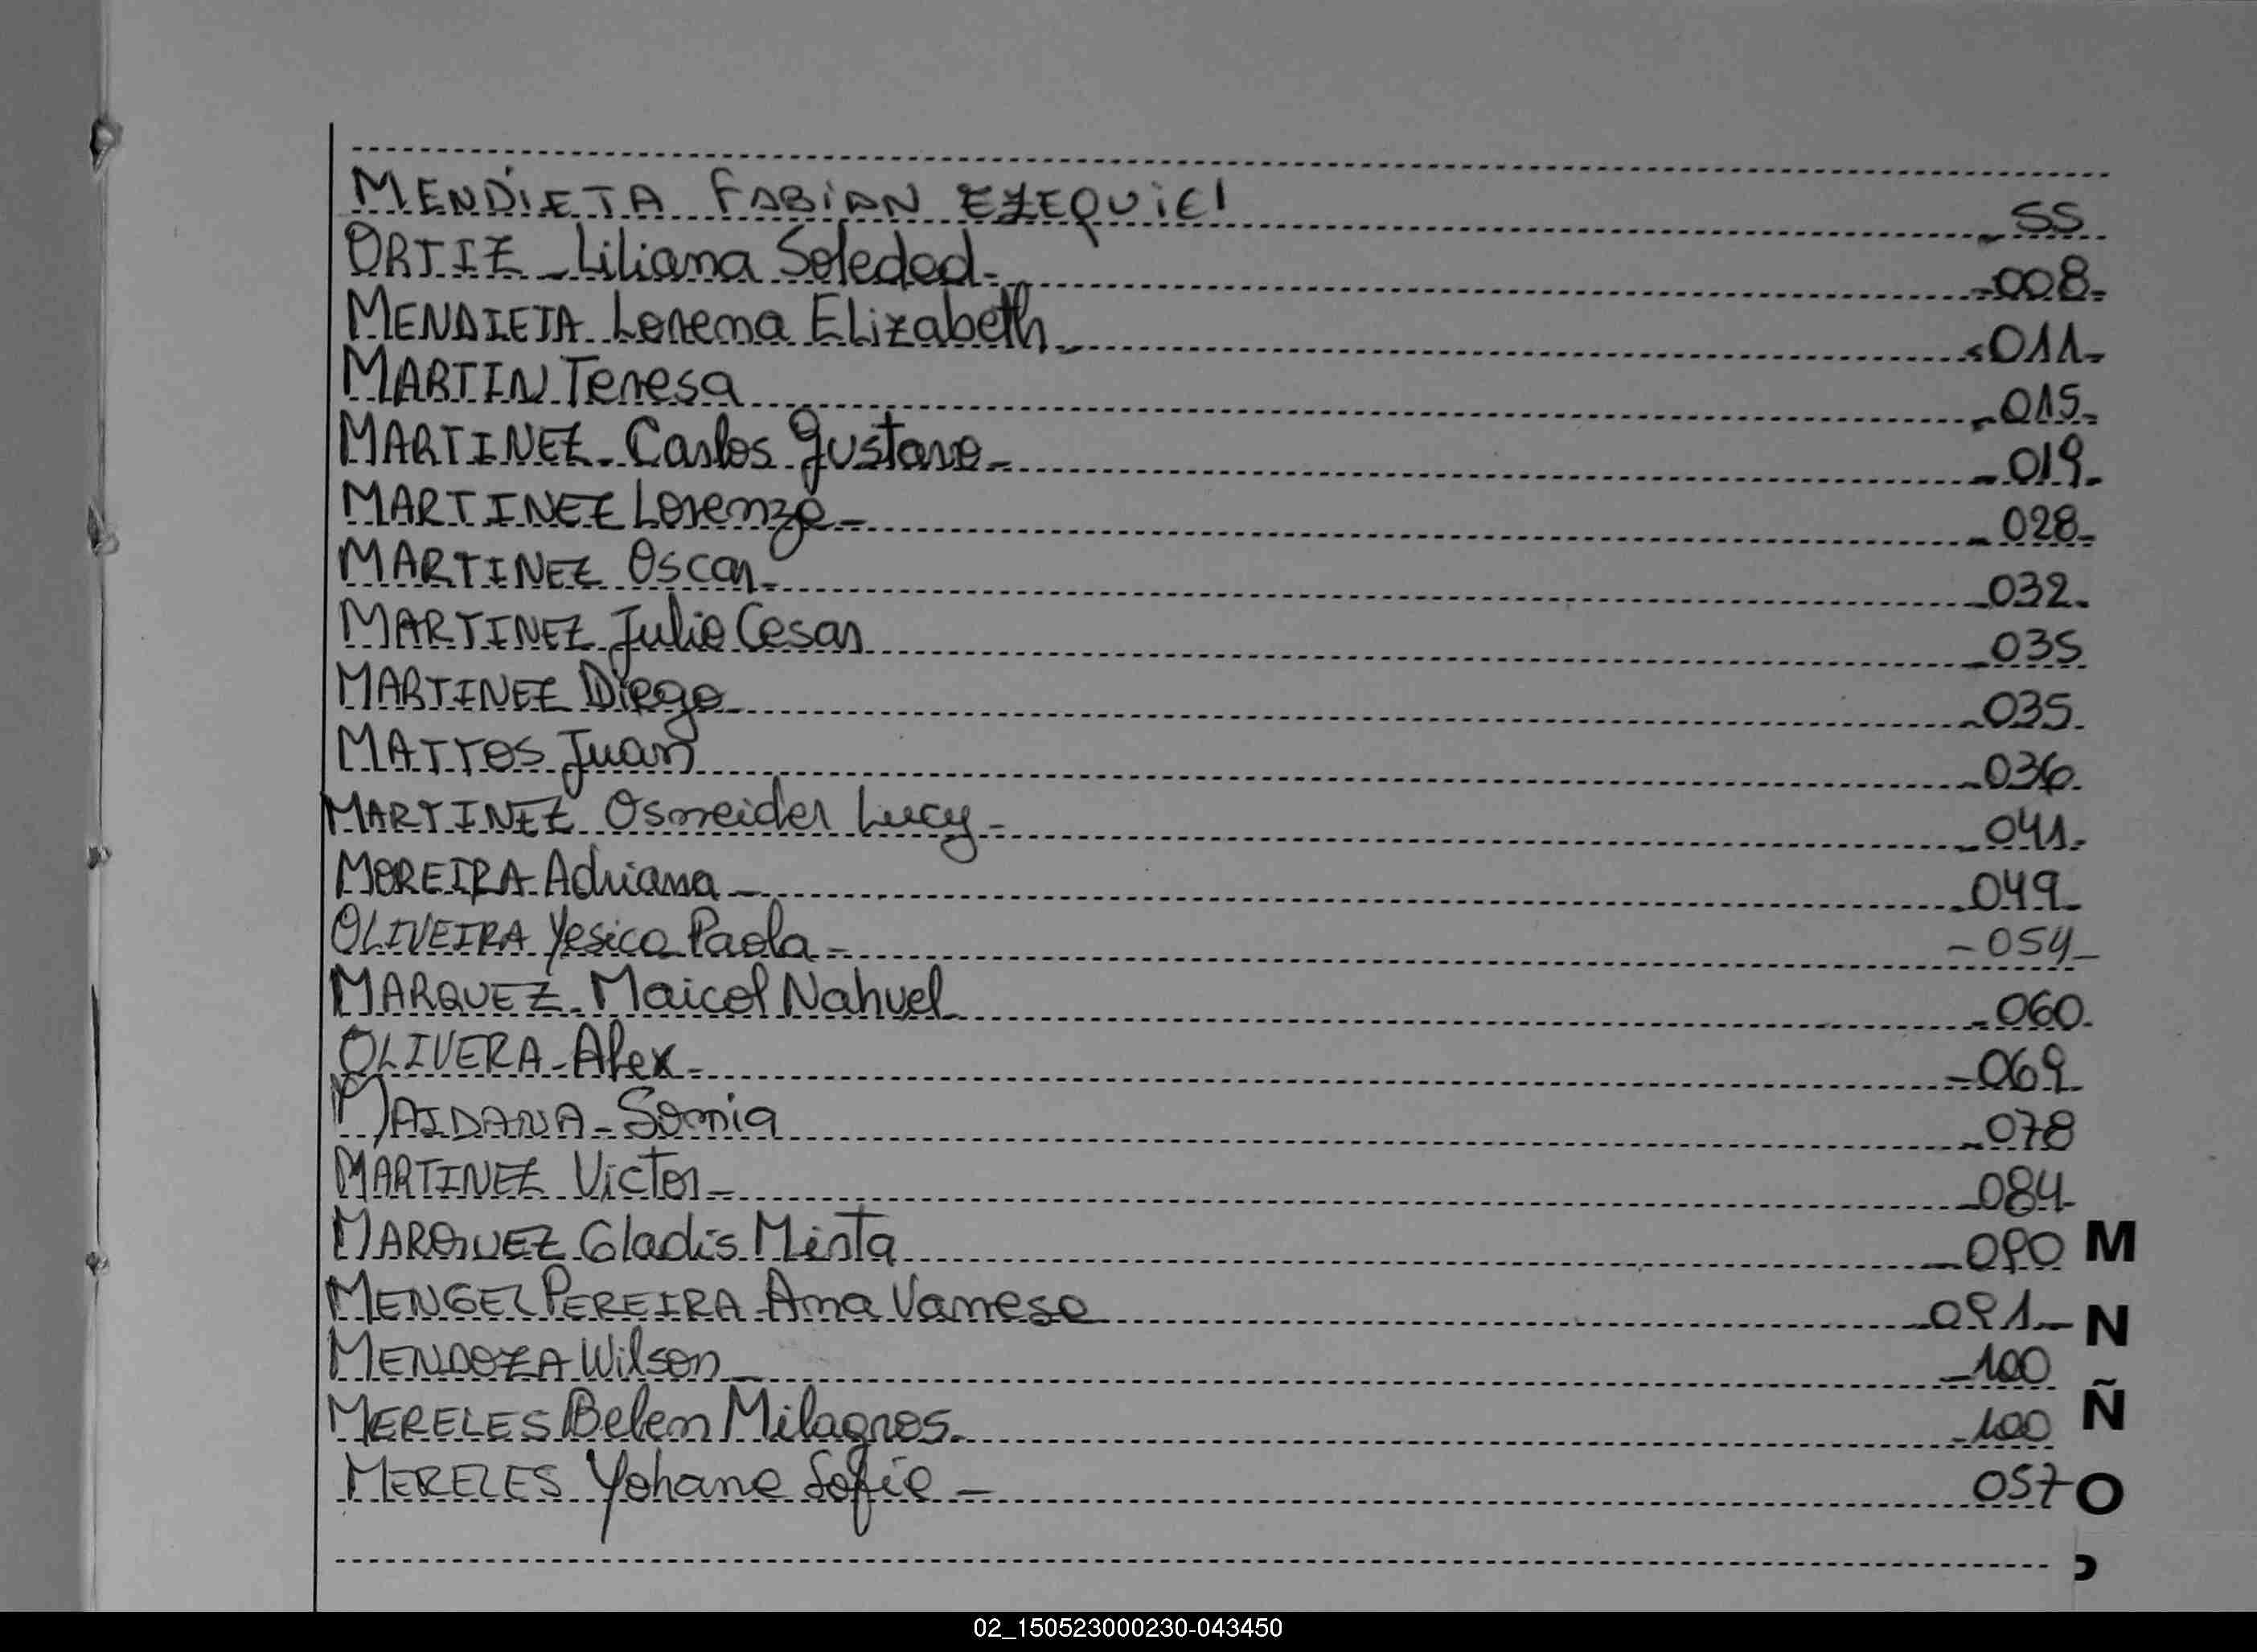 MENDIETA FABIAN EZEQUIEl - 55
ORTIZ - Liliana Soledad - - 008 -
MENDIETA Lorena ELizabeth - - 011 -
MARTIN Teresa - 015 -
MARTINEZ - Carlos Gustavo - - 019 -
MARTINEZ Lorenzo - - 028 -
MARTINEZ Oscar - - 032 -
MARTINEZ Julio Cesar - 035
MARTINEZ Diego - - 035
MATTOS Juan - 036
MARTINEZ Osneider Lucy - - 041 -
MOREIRA Adriana - - 049 -
OLIVEIRA Yesica Paola - - 054 -
MARQUEZ - Maicol Nahuel - 060
OLIVERA - Alex - - 069 -
MAIDANA - Sonia - 078
MARTINEZ Victor - - 084 -
MARQUEZ Gladis Mirta - 090
MENGEL PEREIRA Ana Vanesa - 091 -
MENDOZA Wilson - - 100
MERELES Belen Milagros - - 100
MERELES Yohana Sofia - 057
M
N
Ñ
O
02_150523000230-043450